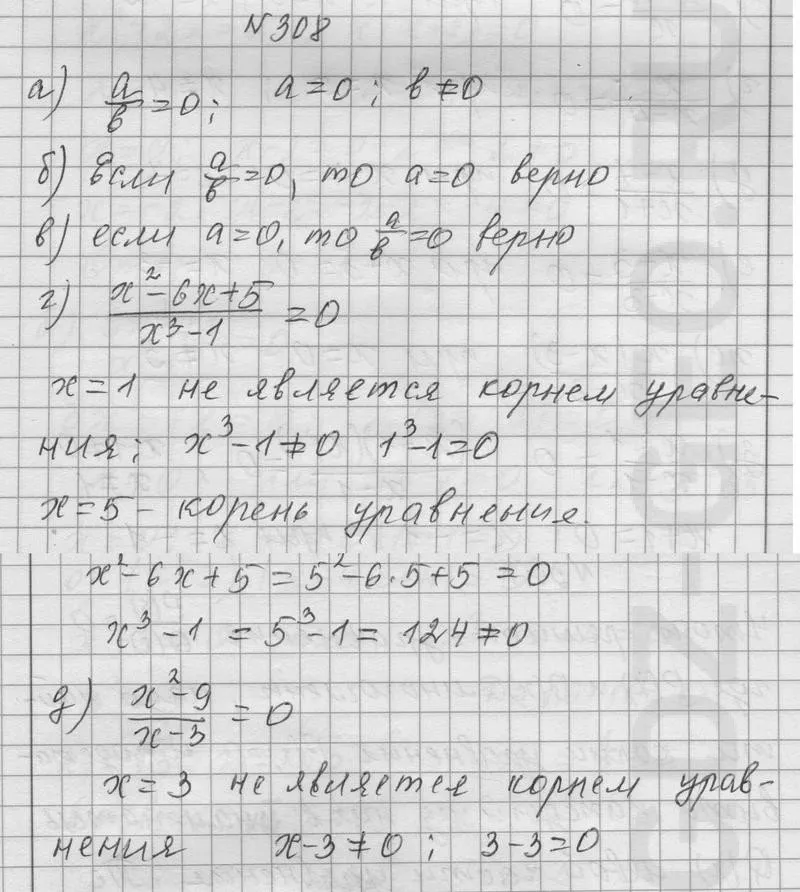 №308
а) a/b = 0; a = 0; b ≠ 0
б) Если a/b = 0, то a = 0 верно
в) если a = 0, то a/b = 0 верно
г) (x² - 6x + 5)/(x³ - 1) = 0
x = 1 не является корнем уравне-
ния; x³ - 1 ≠ 0 1³ - 1 = 0
x = 5 - корень уравнения.
x² - 6x + 5 = 5² - 6·5 + 5 = 0
x³ - 1 = 5³ - 1 = 124 ≠ 0
д) (x² - 9)/(x - 3) = 0
x = 3 не является корнем урав-
нения x - 3 ≠ 0; 3 - 3 = 0